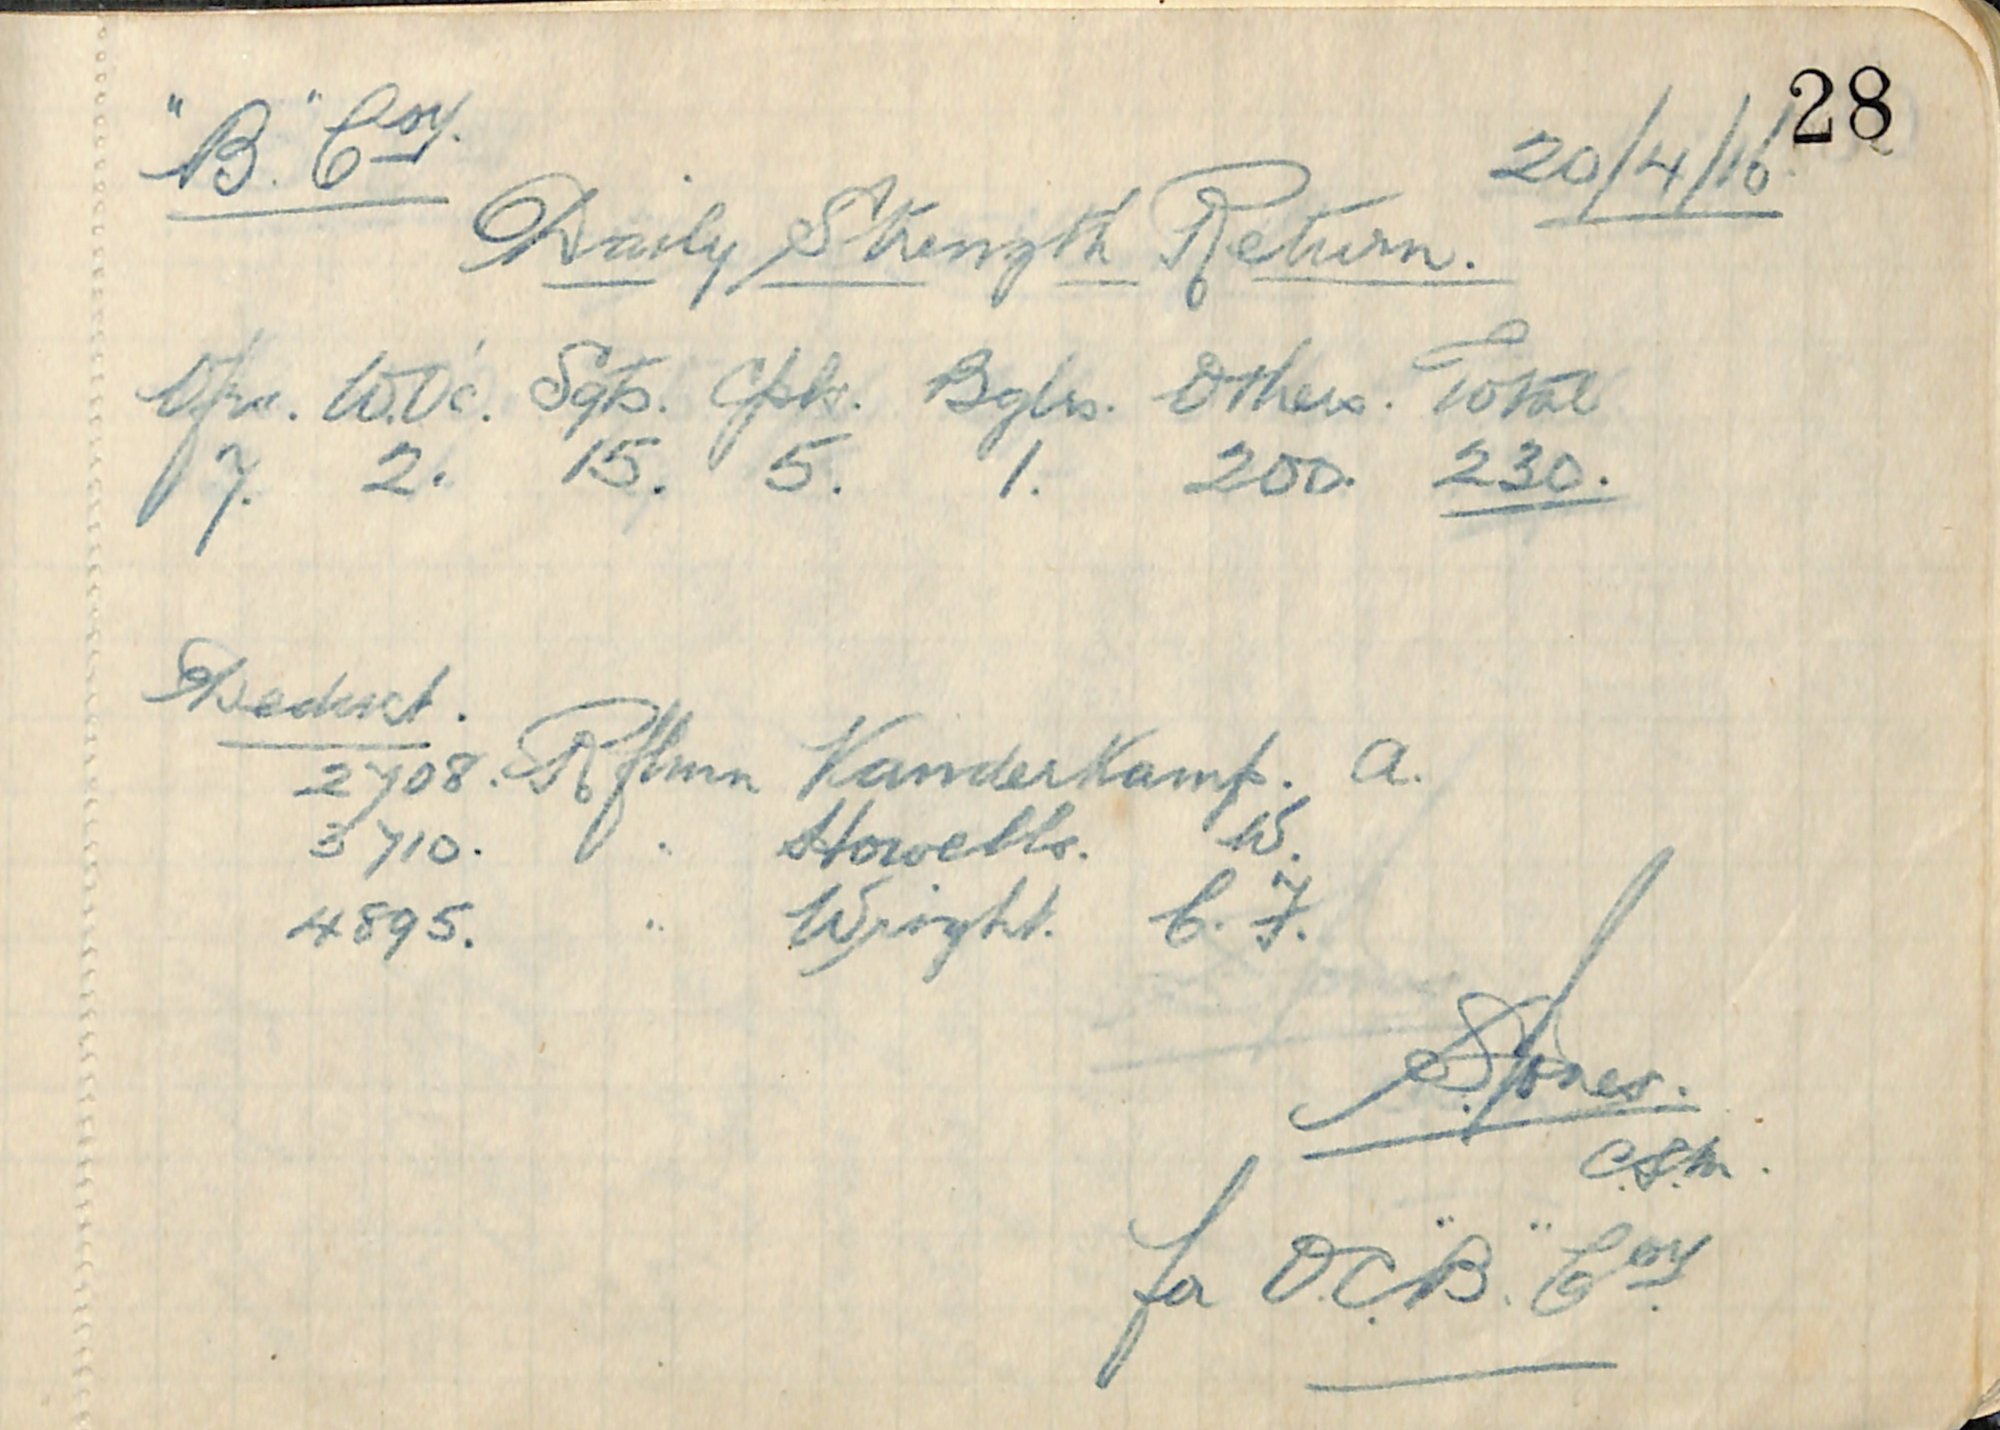 28
"B." Coy.
20/4/16
Daily Strength Return.
Ofrs. W.O's. Sgts. Cpls. Bglrs. Others. Total
7. 2. 15. 5. 1. 200. 230.
Deduct.
2708. Rflmn Vanderkamp. A.
3710. " Howells. W.
4895. " Wright. C. F.
S. Jones.
C.S.M.
for O.C. "B." Coy.